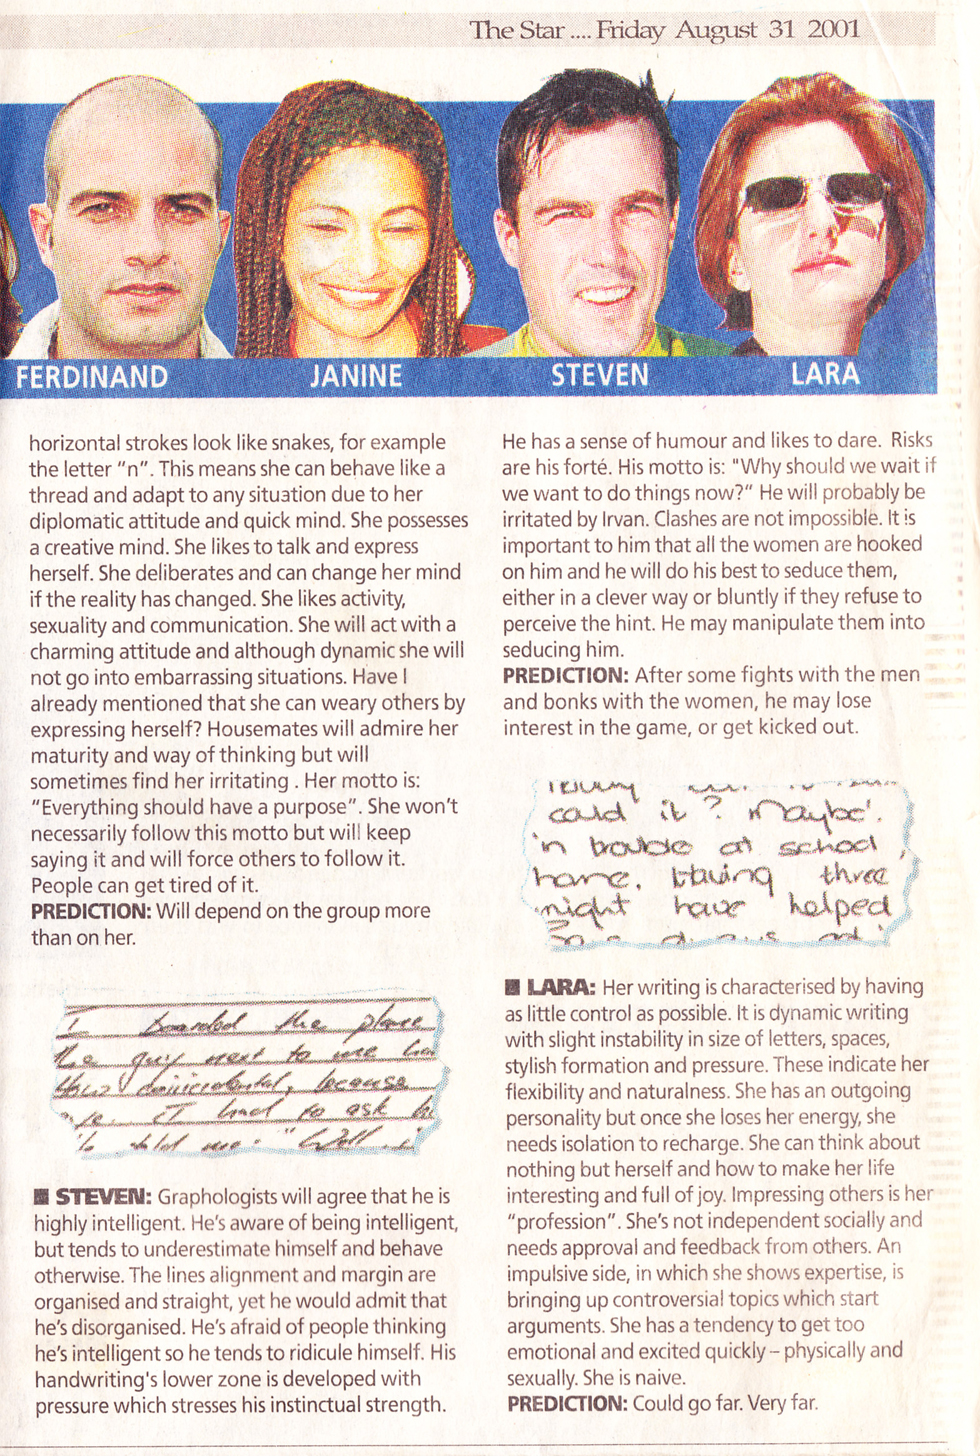 The Star .... Friday August 31 2001
FERDINAND
JANINE
STEVEN
LARA
horizontal strokes look like snakes, for example
the letter "n". This means she can behave like a
thread and adapt to any situation due to her
diplomatic attitude and quick mind. She possesses
a creative mind. She likes to talk and express
herself. She deliberates and can change her mind
if the reality has changed. She likes activity,
sexuality and communication. She will act with a
charming attitude and although dynamic she will
not go into embarrassing situations. Have I
already mentioned that she can weary others by
expressing herself? Housemates will admire her
maturity and way of thinking but will
sometimes find her irritating . Her motto is:
"Everything should have a purpose". She won't
necessarily follow this motto but will keep
saying it and will force others to follow it.
People can get tired of it.
PREDICTION: Will depend on the group more
than on her.
I boarded the plane
the guy next to me had
because
I had to ask h
told me: "Well
■ STEVEN: Graphologists will agree that he is
highly intelligent. He's aware of being intelligent,
but tends to underestimate himself and behave
otherwise. The lines alignment and margin are
organised and straight, yet he would admit that
he's disorganised. He's afraid of people thinking
he's intelligent so he tends to ridicule himself. His
handwriting's lower zone is developed with
pressure which stresses his instinctual strength.
He has a sense of humour and likes to dare. Risks
are his forté. His motto is: "Why should we wait if
we want to do things now?" He will probably be
irritated by Irvan. Clashes are not impossible. It is
important to him that all the women are hooked
on him and he will do his best to seduce them,
either in a clever way or bluntly if they refuse to
perceive the hint. He may manipulate them into
seducing him.
PREDICTION: After some fights with the men
and bonks with the women, he may lose
interest in the game, or get kicked out.
could it? Maybe.
in trouble at school,
home. Having three
night have helped
■ LARA: Her writing is characterised by having
as little control as possible. It is dynamic writing
with slight instability in size of letters, spaces,
stylish formation and pressure. These indicate her
flexibility and naturalness. She has an outgoing
personality but once she loses her energy, she
needs isolation to recharge. She can think about
nothing but herself and how to make her life
interesting and full of joy. Impressing others is her
"profession". She's not independent socially and
needs approval and feedback from others. An
impulsive side, in which she shows expertise, is
bringing up controversial topics which start
arguments. She has a tendency to get too
emotional and excited quickly – physically and
sexually. She is naive.
PREDICTION: Could go far. Very far.